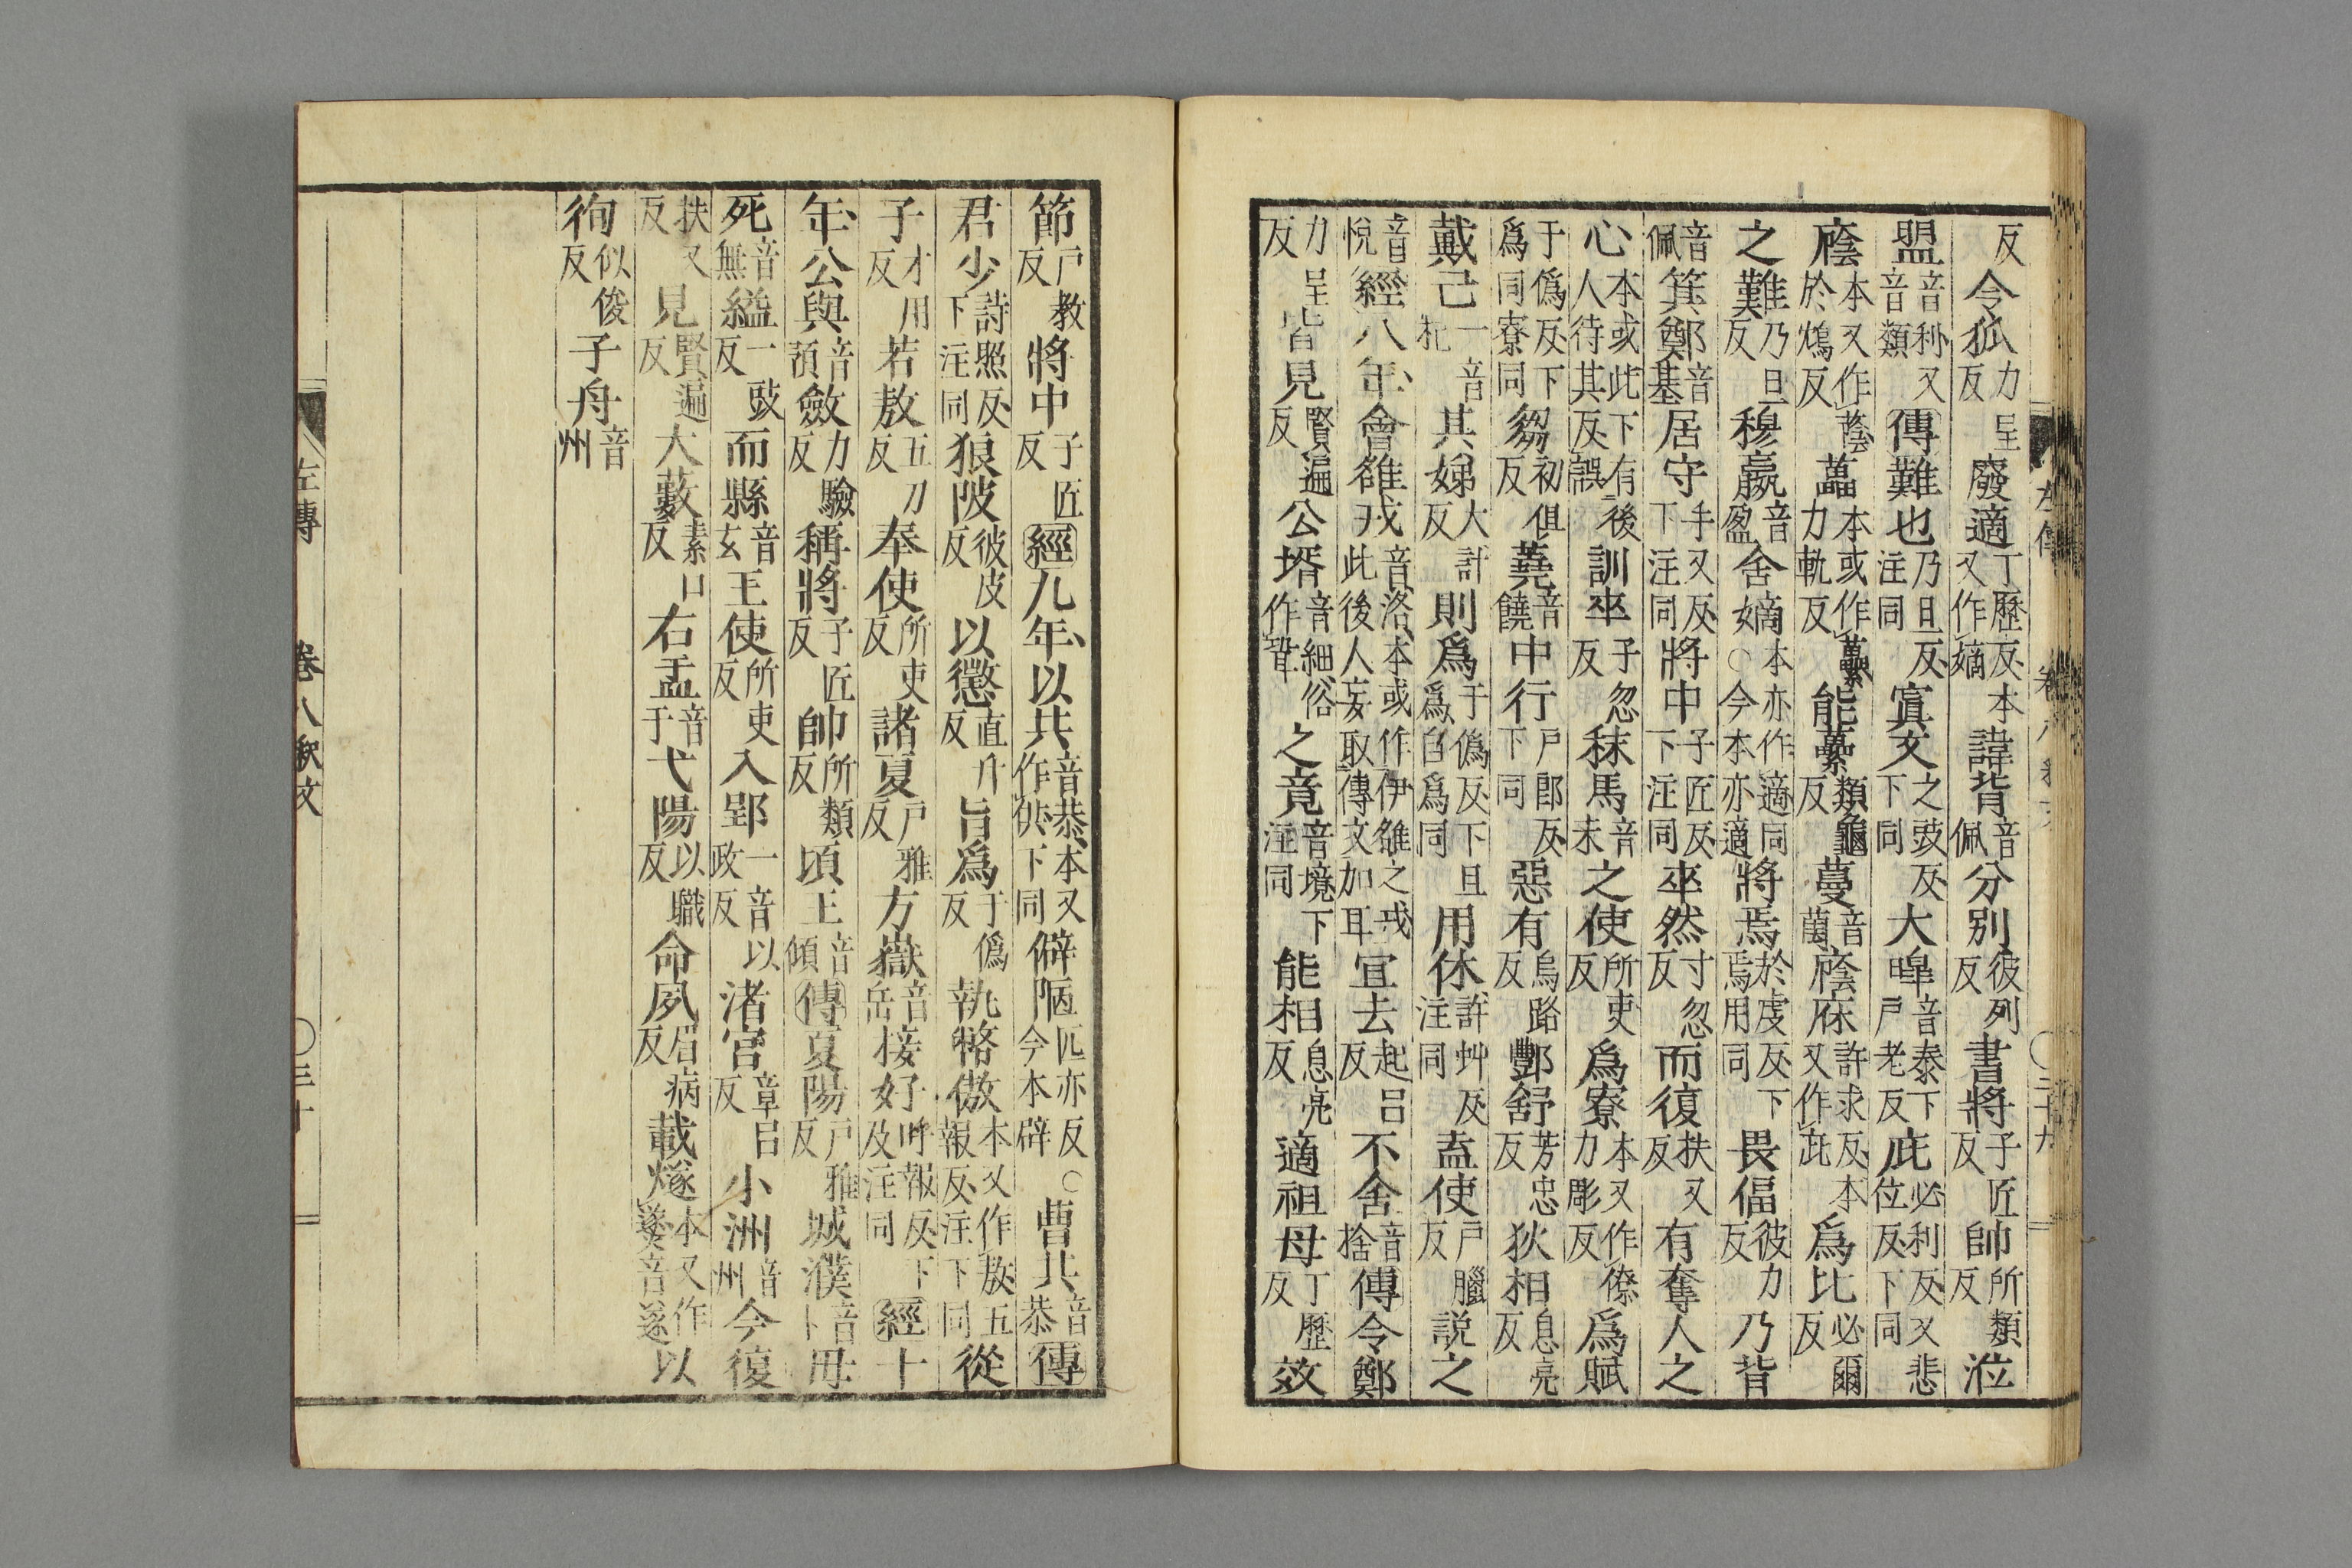 反令狐力呈反廢適丁歷反本又作嫡諱背音佩分別彼列反書將子匠反帥所類反涖
盟音利又音類傳難也乃旦反注同寘文之豉反下同大皞音泰下戶老反庇必利反又悲位反下同
廕本又作蔭於鴆反藟本或作虆力軌反能藟類龜反蔓音蔓廕庥許求反本又作庇爲比必爾反
之難乃旦反穆嬴音盈舍嫡本亦作適同○今本亦適將焉於虔反下焉用同畏偪彼力反乃背
音佩箕鄭音基居守手又反下注同將中子匠反下注同卒然寸忽反而復扶又反有奪人之
心本或此下有後人待其反誤訓卒子忽反秣馬音末之使所吏反爲寮本又作僚力彫反爲賦
于僞反下爲同寮同芻初俱反蕘音饒中行戶郎反下同惡有烏路反酆舒芳忠反狄相息亮反
戴己一音杞其娣大計反則爲于僞反下且爲自爲同用休許虬反注同盍使戶臘反說之
音悅經八年會雒戎音洛本或作伊雒之戎此後人妄取傳文加耳宜去起呂反不舍音捨傳令鄭
力呈反皆見賢遍反公壻音細俗作聟之竟音境下注同能相息亮反適祖母丁歷反效
左傳 卷八釋文 ○二十九
節戶教反將中子匠反經九年以共音恭本又作供下同僻陋匹亦反○今本辟曹共音恭傳
君少詩照反下注同狼陂彼皮反以懲直升反旨爲于僞反執幣傲本又作敖五報反注下同從
子才用反若敖五刀反奉使所吏反諸夏戶雅反方嶽音岳接好呼報反下及注同經十
年公與音預斂力驗反稱將子匠反帥所類反頃王音傾傳夏陽戶雅反城濮音卜毋
死音無縊一豉反而縣音玄王使所吏反入郢以政反一音渚宮章呂反小洲音州今復
扶又反見賢遍反大藪素口反右盂音于弋陽以職反命夙眉病反載燧本又作㸂音遂以
徇似俊反子舟音州
左傳 卷八釋文 ○三十